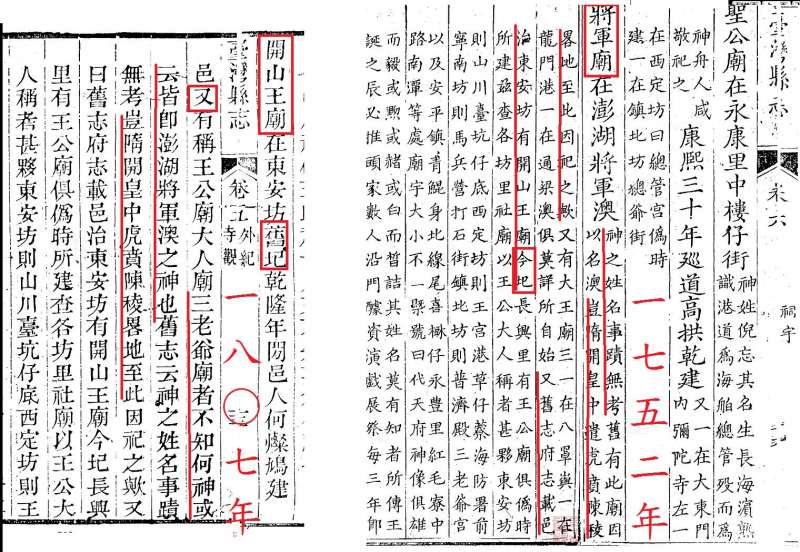 臺灣縣志 卷六 祠宇
聖公廟在永康里中樓仔街
神姓倪忘其名生長海濱熟
識港道為海舶總管歿而為
神舟人咸
敬祀之
康熙三十年巡道高拱乾建
又一在大東門
內彌陀寺左一
在西定坊曰總管宮偽時
建一在鎮北坊總爺街
一七五二年
將軍廟在澎湖將軍澳
神之姓名事蹟無考舊有此廟因
以名澳豈隋開皇中遣虎賁陳稜
畧地至此因祀之歟又有大王廟三一在八罩與一在
龍門港一在通梁澳俱莫詳所自始又舊志府志載邑
治東安坊有開山王廟今圯長興里有王公廟俱偽時
所建茲查各坊里社廟以王公大人稱者甚夥東安坊
則山川臺坑仔底西定坊則王宮港草仔藔海防署前
寧南坊則馬兵營打石街鎮北坊則普濟殿三老爺宮
以及安平鎮青鯤身北線尾喜樹仔永豐里紅毛寮中
路南潭等處廟宇大小不一號曰代天府神像俱雄
而毅或黝或赭或白而皙詰其姓名莫有知者所傳王
誕之辰必推頭家數人沿門醵資演戲展祭每三年即
開山王廟在東安坊舊圮乾隆年閒邑人何燦鳩建
臺灣縣志 卷五 外紀 寺觀 三
一八〇七年
邑又有稱王公廟大人廟三老爺廟者不知何神或
云皆即澎湖將軍澳之神也舊志云神之姓名事蹟
無考豈隋開皇中虎賁陳稜畧地至此因祀之歟又
曰舊志府志載邑治東安坊有開山王廟今圮長興
里有王公廟俱偽時所建查各坊里社廟以王公大
人稱者甚夥東安坊則山川臺坑仔底西定坊則王